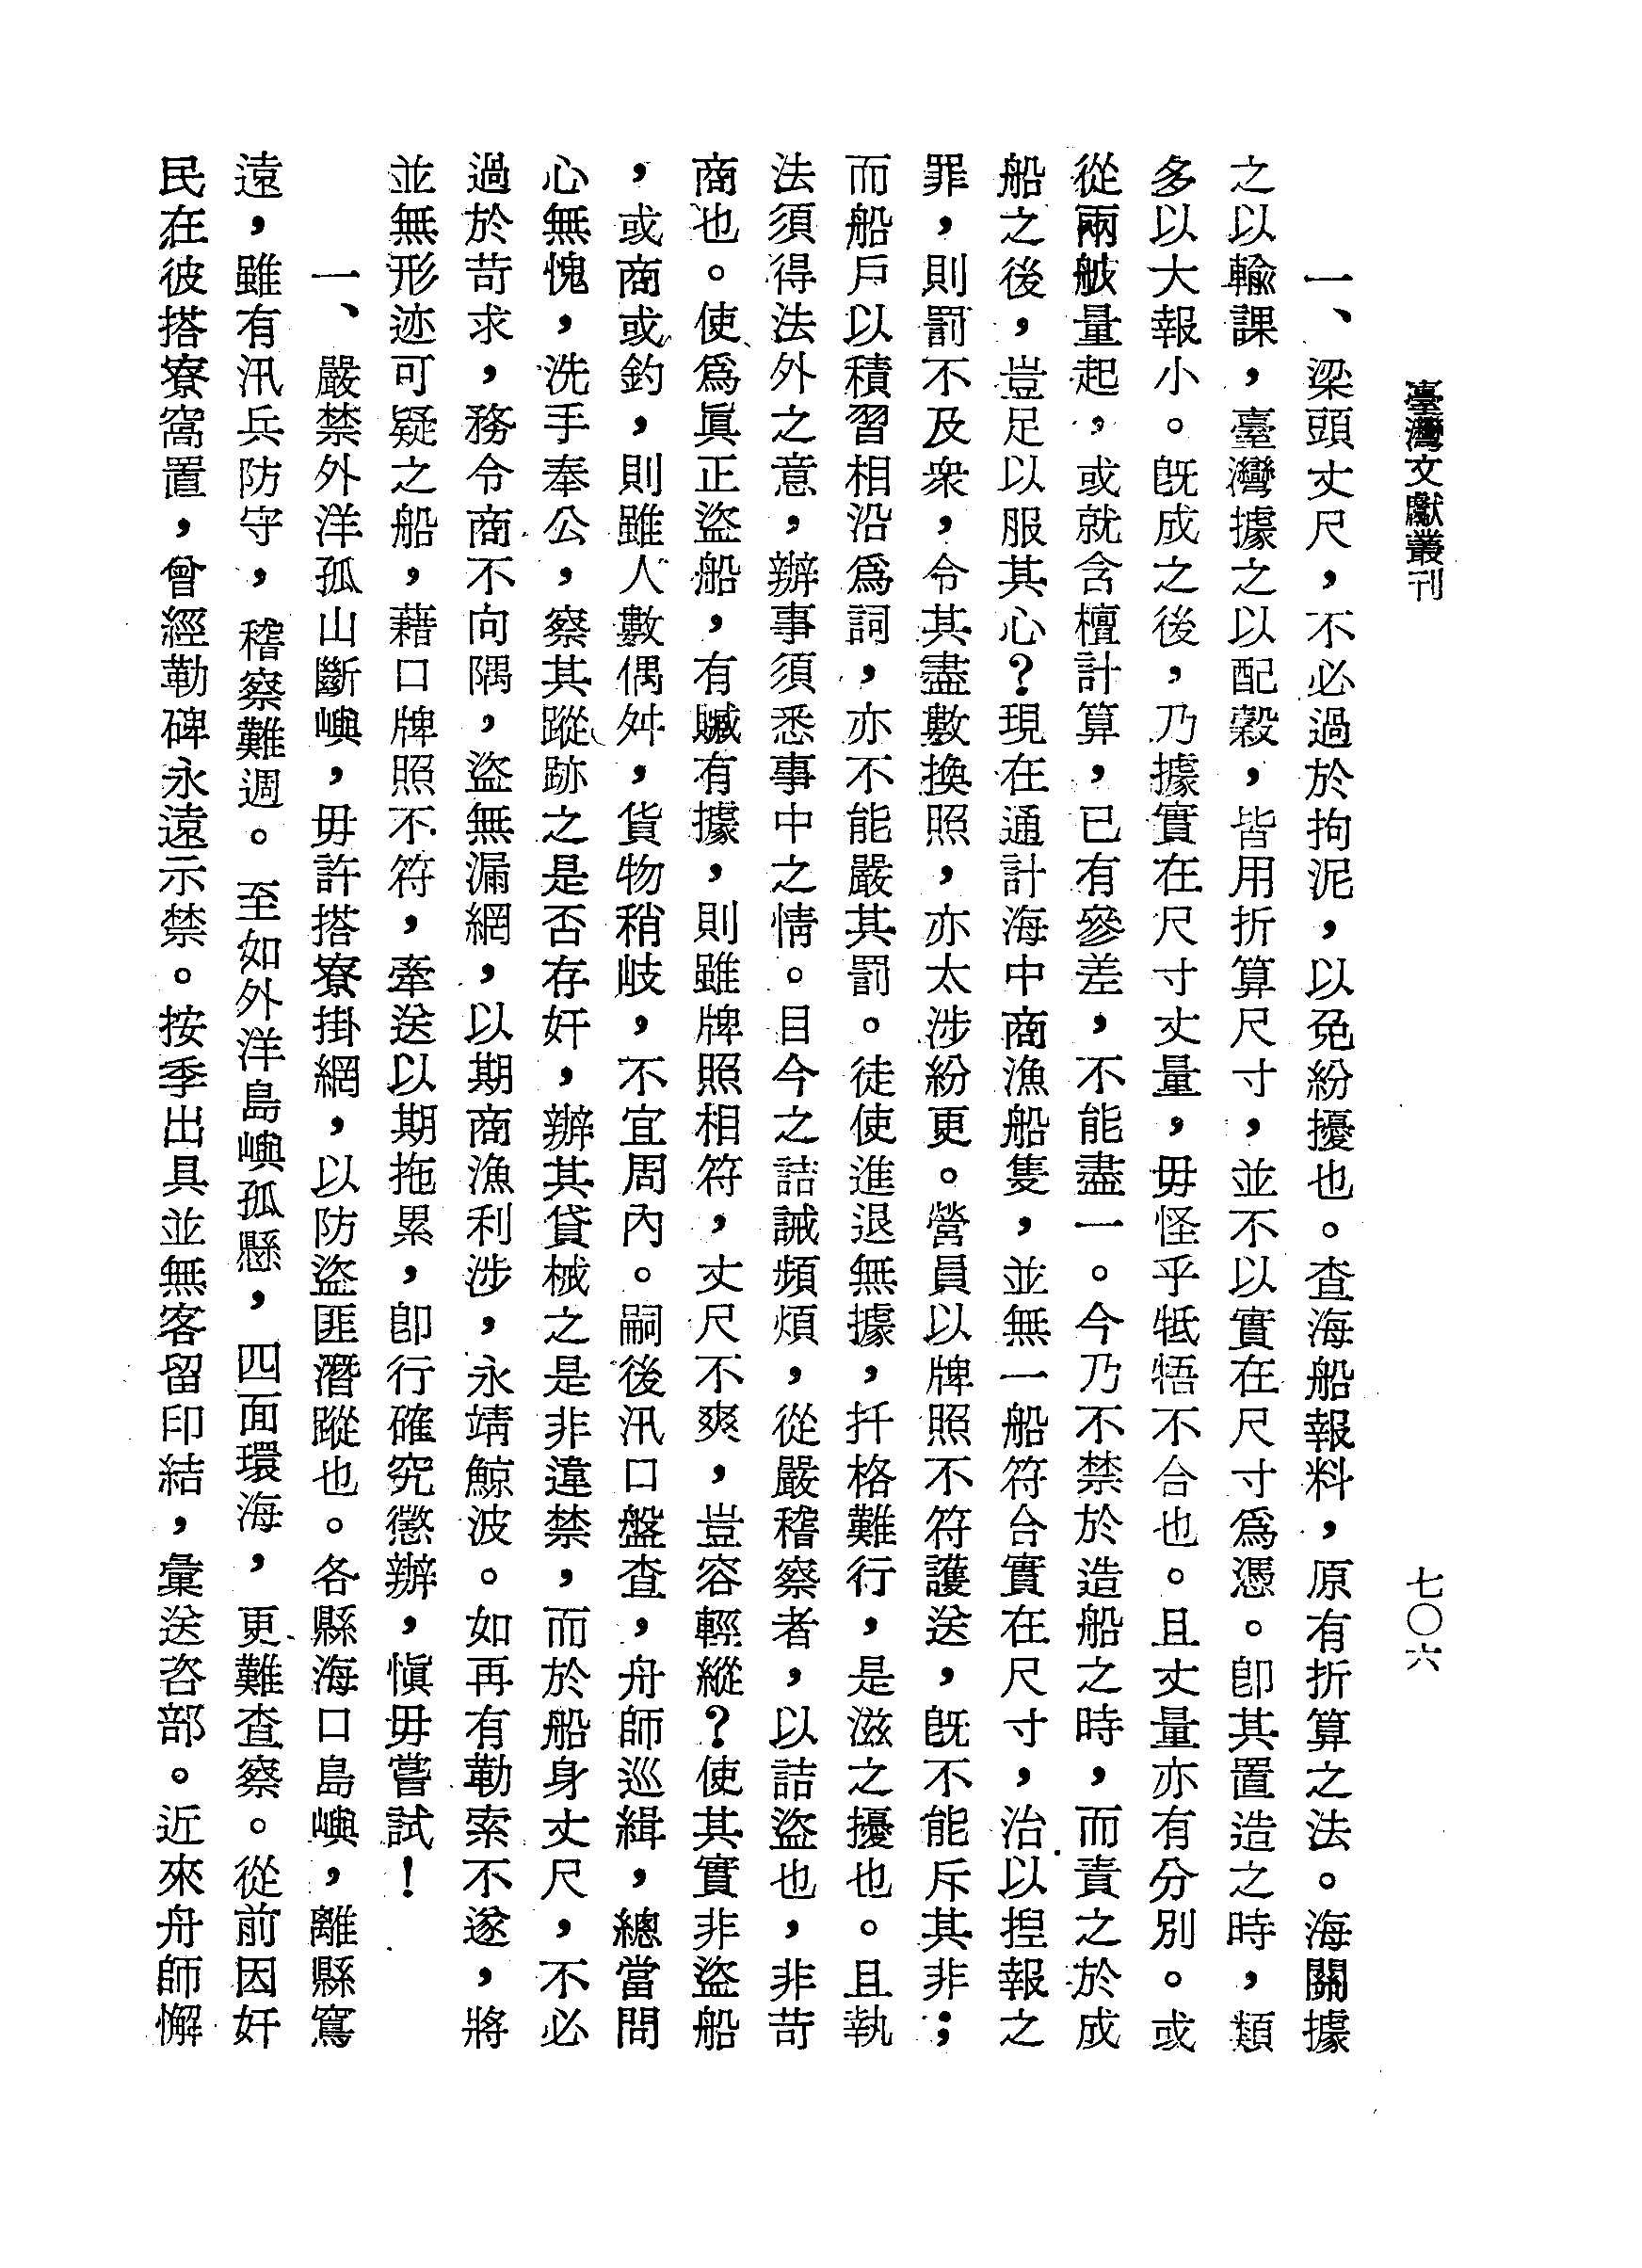 臺灣文獻叢刊
七〇六
一、梁頭丈尺，不必過於拘泥，以免紛擾也。查海船報料，原有折算之法。海關據
之以輸課，臺灣據之以配穀，皆用折算尺寸，並不以實在尺寸爲憑。卽其置造之時，類
多以大報小。旣成之後，乃據實在尺寸丈量，毋怪乎牴牾不合也。且丈量亦有分別。或
從兩舷量起，或就含檀計算，已有參差，不能盡一。今乃不禁於造船之時，而責之於成
船之後，豈足以服其心？現在通計海中商漁船隻，並無一船符合實在尺寸，治以揑報之
罪，則罰不及衆，令其盡數換照，亦太涉紛更。營員以牌照不符護送，旣不能斥其非；
而船戶以積習相沿爲詞，亦不能嚴其罰。徒使進退無據，扞格難行，是滋之擾也。且執
法須得法外之意，辦事須悉事中之情。目今之詰誡頻煩，從嚴稽察者，以詰盜也，非苛
商也。使爲眞正盜船，有贓有據，則雖牌照相符，丈尺不爽，豈容輕縱？使其實非盜船
，或商或釣，則雖人數偶舛，貨物稍岐，不宜周內。嗣後汛口盤查，舟師巡緝，總當問
心無愧，洗手奉公，察其蹤跡之是否存奸，辦其貨械之是非違禁，而於船身丈尺，不必
過於苛求，務令商不向隅，盜無漏網，以期商漁利涉，永靖鯨波。如再有勒索不遂，將
並無形迹可疑之船，藉口牌照不符，牽送以期拖累，卽行確究懲辦，愼毋嘗試！
一、嚴禁外洋孤山斷嶼，毋許搭寮掛網，以防盜匪潛蹤也。各縣海口島嶼，離縣窵
遠，雖有汛兵防守，稽察難週。至如外洋島嶼孤懸，四面環海，更難查察。從前因奸
民在彼搭寮窩置，曾經勒碑永遠示禁。按季出具並無客留印結，彙送咨部。近來舟師懈